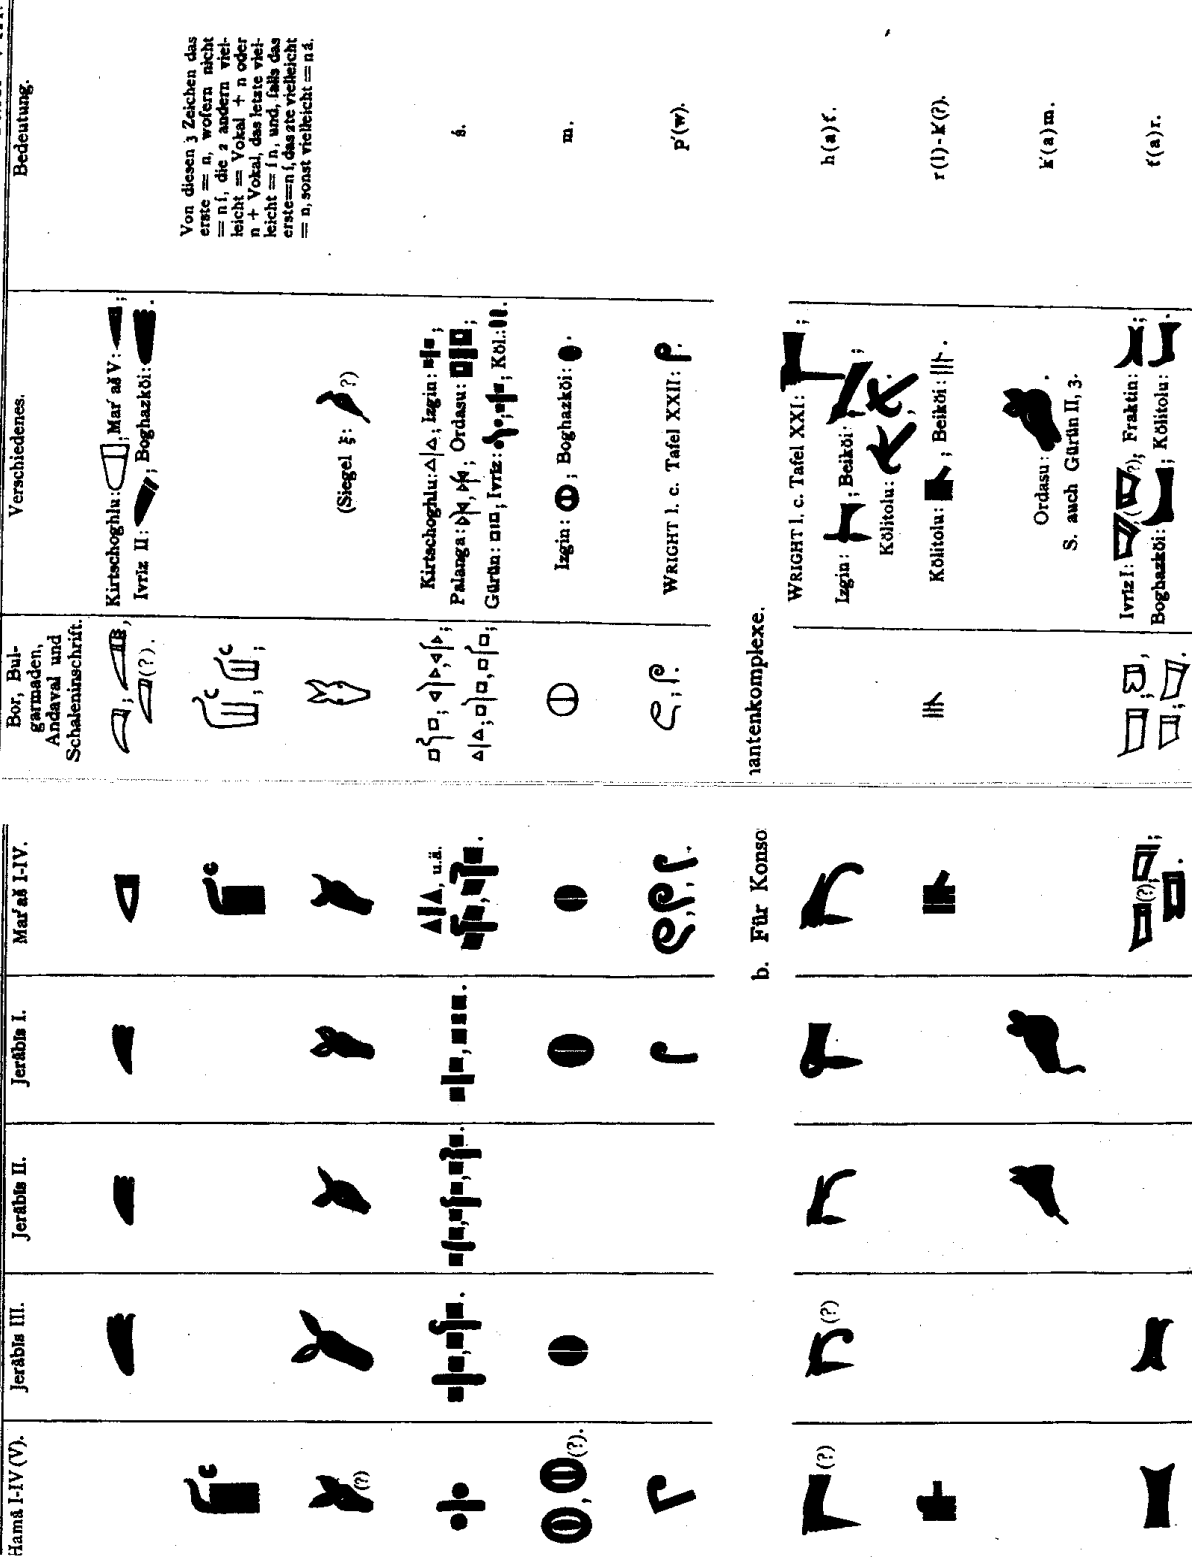 Hamâ I-IV (V).
Jerâbîs III.
Jerâbîs II.
Jerâbîs I.
Mar'aš I-IV.
Bor, Bul-
garmaden,
Andaval und
Schaleninschrift.
Verschiedenes.
Bedeutung.
(?).
Kirtschoghlu: ; Mar'aš V: ;
Ivrîz II: ; Boghazköi: .
Von diesen 3 Zeichen das
erste = n, wofern nicht
= ní, die 2 andern viel-
leicht = Vokal + n oder
n + Vokal, das letzte viel-
leicht = ín, und, falls das
erste = ní, das 2te vielleicht
= n, sonst vielleicht = ná.
(?)
(Siegel ξ: ?)
, u.ä.
Kirtschoghlu: ; Izgin: ;
Palanga: , ; Ordasu: ;
Gürün: ; Ivrîz: ; Köl.: .
ś.
(?).
Izgin: ; Boghazköi: .
m.
WRIGHT l. c. Tafel XXII: .
p'(w).
b. Für Konsonantenkomplexe.
(?)
(?)
WRIGHT l. c. Tafel XXI: ;
Izgin: ; Beiköi: ;
Kölitolu: , .
h(a)t'.
Kölitolu: ; Beiköi: .
r(l)-k'(?).
Ordasu: .
S. auch Gürün II, 3.
k'(a)m.
(?)
Ivrîz I: , ( ?); Fraktin: ;
Boghazköi: ; Kölitolu: .
t'(a)r.